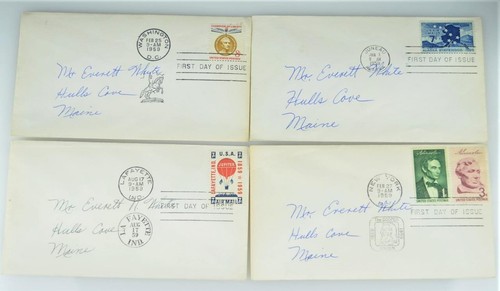 WASHINGTON
FEB 25
9-AM
1959
D.C.
FIRST DAY OF ISSUE
Mr Everett White
Hulls Cove
Maine
JUNEAU
FIRST DAY OF ISSUE
Mr. Everett White
Hulls Cove
Maine
LAFAYETTE
AUG 17
9-AM
1959
IND.
U.S.A.
AIR MAIL
FIRST DAY OF ISSUE
Mr Everett
Hulls Cove
Maine
LA FAYETTE
AUG
17
59
IND
NEW YORK
FEB 27
9-AM
1959
FIRST DAY OF ISSUE
Mr. Everett White
Hulls Cove
Maine